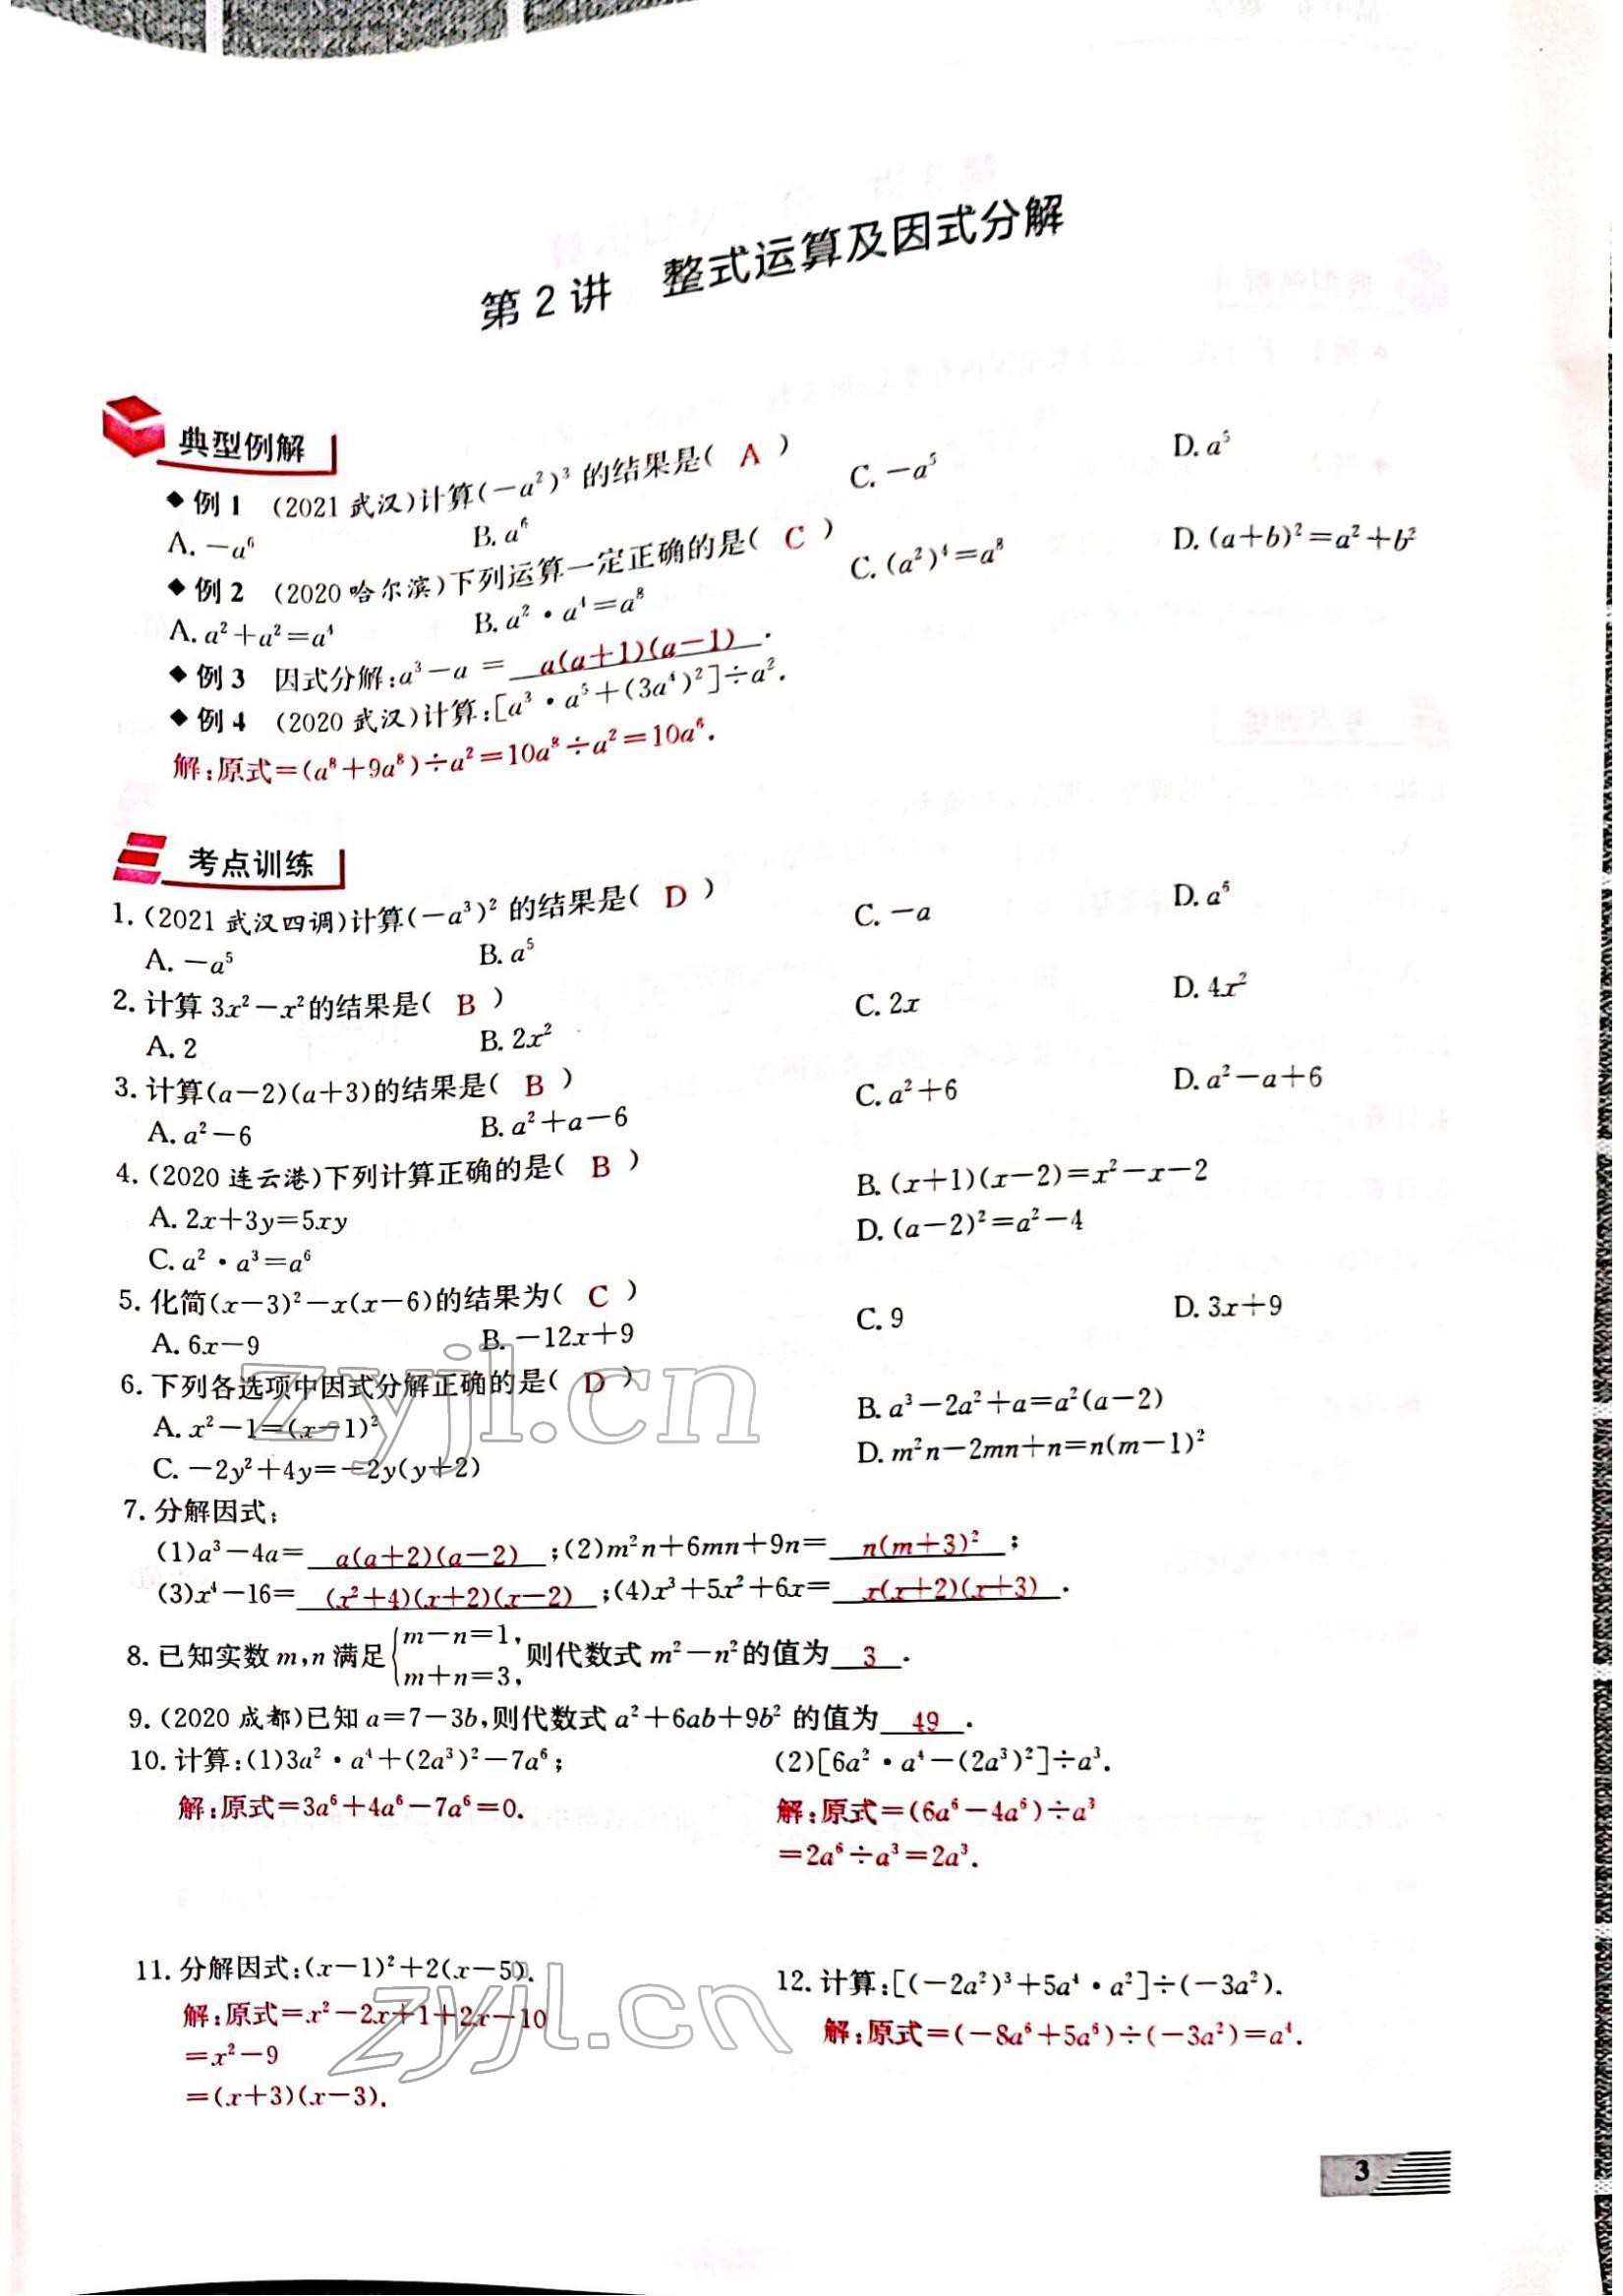 第2讲 整式运算及因式分解
典型例解
◆例1 (2021 武汉)计算(－a²)³ 的结果是( A )
A. －a⁶ B. a⁶ C. －a⁵ D. a⁵
◆例2 (2020 哈尔滨)下列运算一定正确的是( C )
A. a²＋a²＝a⁴ B. a²·a⁴＝a⁸ C. (a²)⁴＝a⁸ D. (a＋b)²＝a²＋b²
◆例3 因式分解:a³－a ＝ a(a＋1)(a－1) .
◆例4 (2020 武汉)计算:[a³·a⁵＋(3a⁴)²]÷a².
解:原式＝(a⁸＋9a⁸)÷a²＝10a⁸÷a²＝10a⁶.
考点训练
1. (2021 武汉四调)计算(－a³)² 的结果是( D )
A. －a⁵ B. a⁵ C. －a D. a⁶
2. 计算 3x²－x²的结果是( B )
A. 2 B. 2x² C. 2x D. 4x²
3. 计算(a－2)(a＋3)的结果是( B )
A. a²－6 B. a²＋a－6 C. a²＋6 D. a²－a＋6
4. (2020 连云港)下列计算正确的是( B )
A. 2x＋3y＝5xy B. (x＋1)(x－2)＝x²－x－2
C. a²·a³＝a⁶ D. (a－2)²＝a²－4
5. 化简(x－3)²－x(x－6)的结果为( C )
A. 6x－9 B. －12x＋9 C. 9 D. 3x＋9
6. 下列各选项中因式分解正确的是( D )
A. x²－1＝(x－1)² B. a³－2a²＋a＝a²(a－2)
C. －2y²＋4y＝－2y(y＋2) D. m²n－2mn＋n＝n(m－1)²
7. 分解因式:
(1)a³－4a＝ a(a＋2)(a－2) ;(2)m²n＋6mn＋9n＝ n(m＋3)² ;
(3)x⁴－16＝ (x²＋4)(x＋2)(x－2) ;(4)x³＋5x²＋6x＝ x(x＋2)(x＋3) .
8. 已知实数 m,n 满足{m－n＝1, m＋n＝3, 则代数式 m²－n²的值为 3 .
9. (2020 成都)已知 a＝7－3b,则代数式 a²＋6ab＋9b² 的值为 49 .
10. 计算:(1)3a²·a⁴＋(2a³)²－7a⁶; (2)[6a²·a⁴－(2a³)²]÷a³.
解:原式＝3a⁶＋4a⁶－7a⁶＝0. 解:原式＝(6a⁶－4a⁶)÷a³
＝2a⁶÷a³＝2a³.
11. 分解因式:(x－1)²＋2(x－5). 12. 计算:[(－2a²)³＋5a⁴·a²]÷(－3a²).
解:原式＝x²－2x＋1＋2x－10 解:原式＝(－8a⁶＋5a⁶)÷(－3a²)＝a⁴.
＝x²－9
＝(x＋3)(x－3).
3
zyjl.cn
zyjl.cn